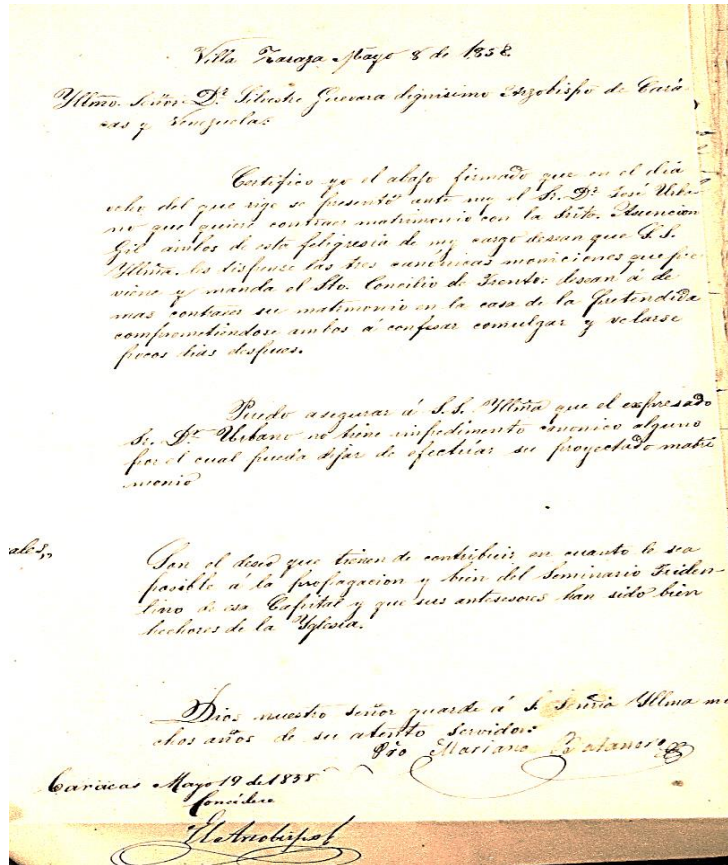 Villa Zaraza Mayo 8 de 1858.
Yllmo. Señor Dr. Silvestre Guevara dignisimo Arzobispo de Cará-
cas y Venezuela.
Certifico yo el abajo firmado que en el dia
ocho del que rige se presentó ante my el Sr. Dr. José Urba-
no que quiere contraer matrimonio con la Srta. Asencion
Gil ambos de esta feligresia de my cargo desean que S. S.
Yllma. les dispense las tres canónicas moniciones que pre-
viene y manda el Sto. Concilio de Trento: desean á de
mas contraer su matrimonio en la casa de la pretendida
comprometiendose ambos á confesar comulgar y velarse
pocos dias despues.
Puedo asegurar á S. S. Yllma que el expresado
Sr. Dr. Urbano no tiene impedimento canonico alguno
por el cual pueda dejar de efectuar su proyectado matri
monio
ales,,
Son el deseo que tienen de contribuir en cuanto le sea
posible á la propagacion y bien del Seminario Triden-
tino de esa Capital y que sus antesesores han sido bien
hechores de la Yglesia.
Dios nuestro señor guarde á S. Señria Yllma mu
chos años de su atento servidor
Pbro Mariano
Carácas Mayo 19 de 1858
Concédese
El Arzobispo